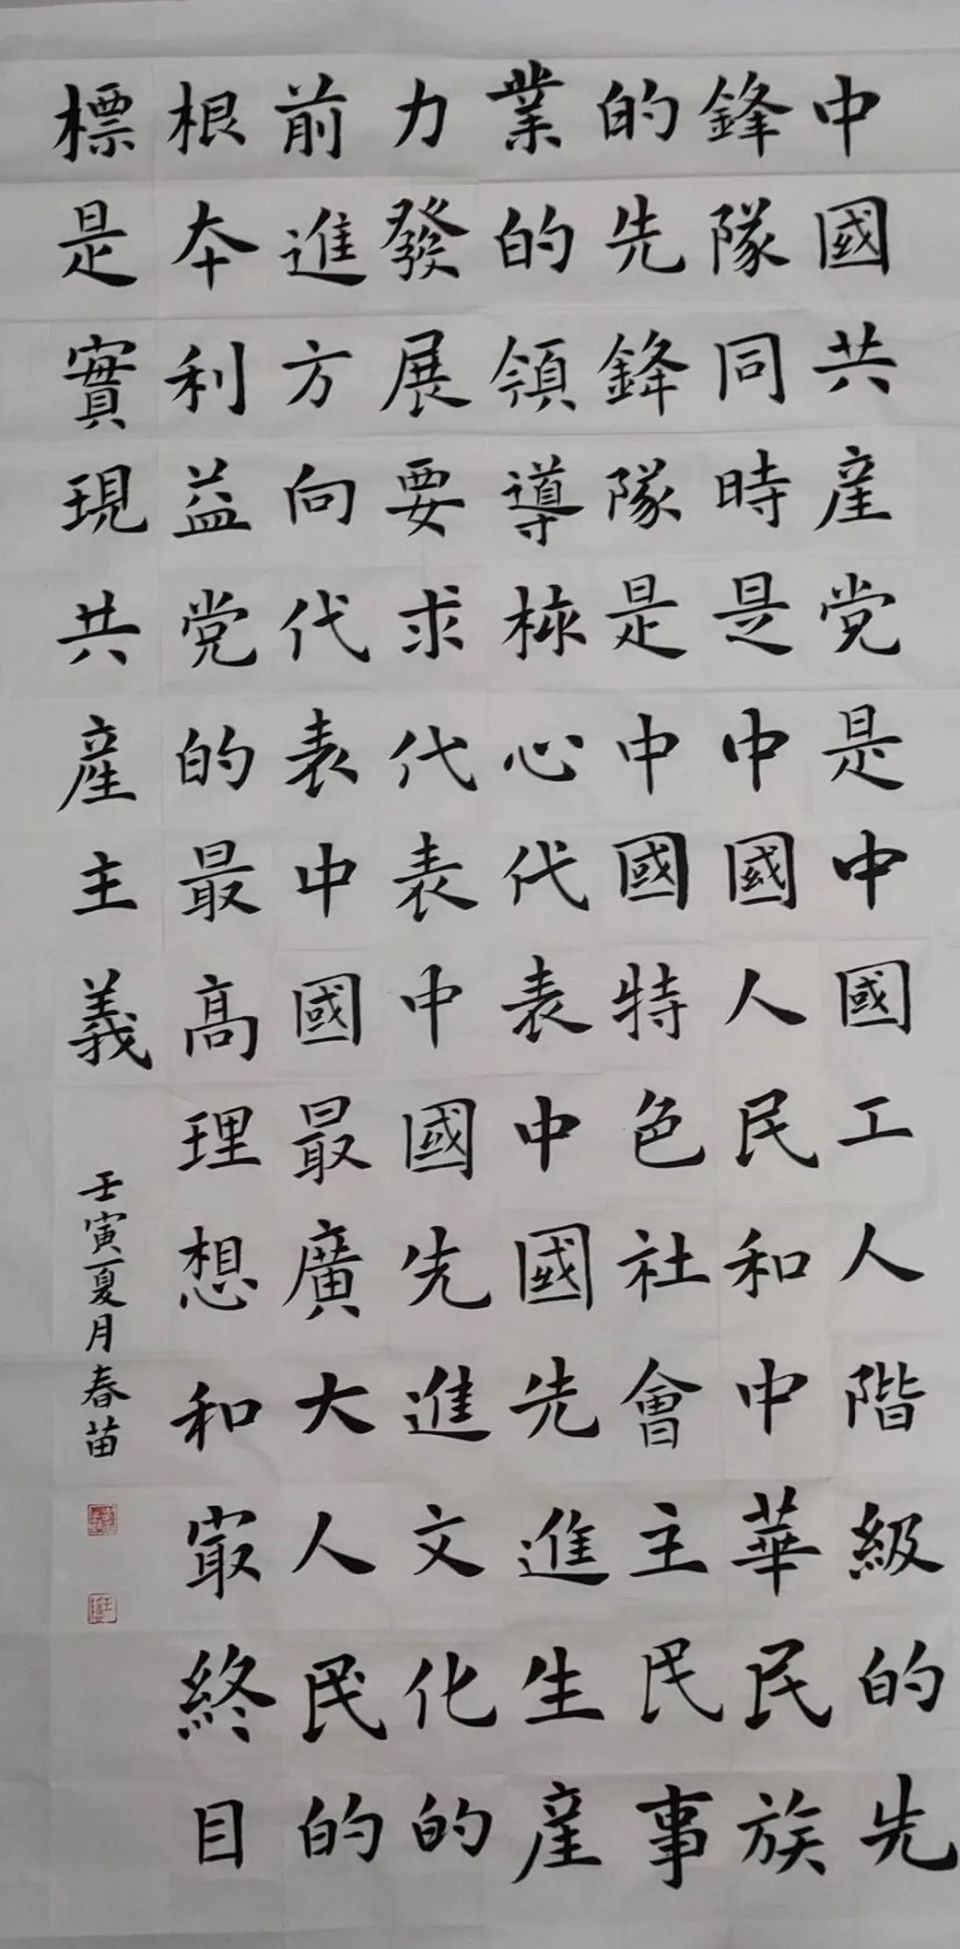 中國共産党是中國工人階級的先
鋒隊同時是中國人民和中華民族
的先鋒隊是中國特色社會主民事
業的領導核心代表中國先進生産
力發展要求代表中國先進文化的
前進方向代表中國最廣大人民的
根本利益党的最高理想和㝡終目
標是實現共産主義
壬寅夏月春苗